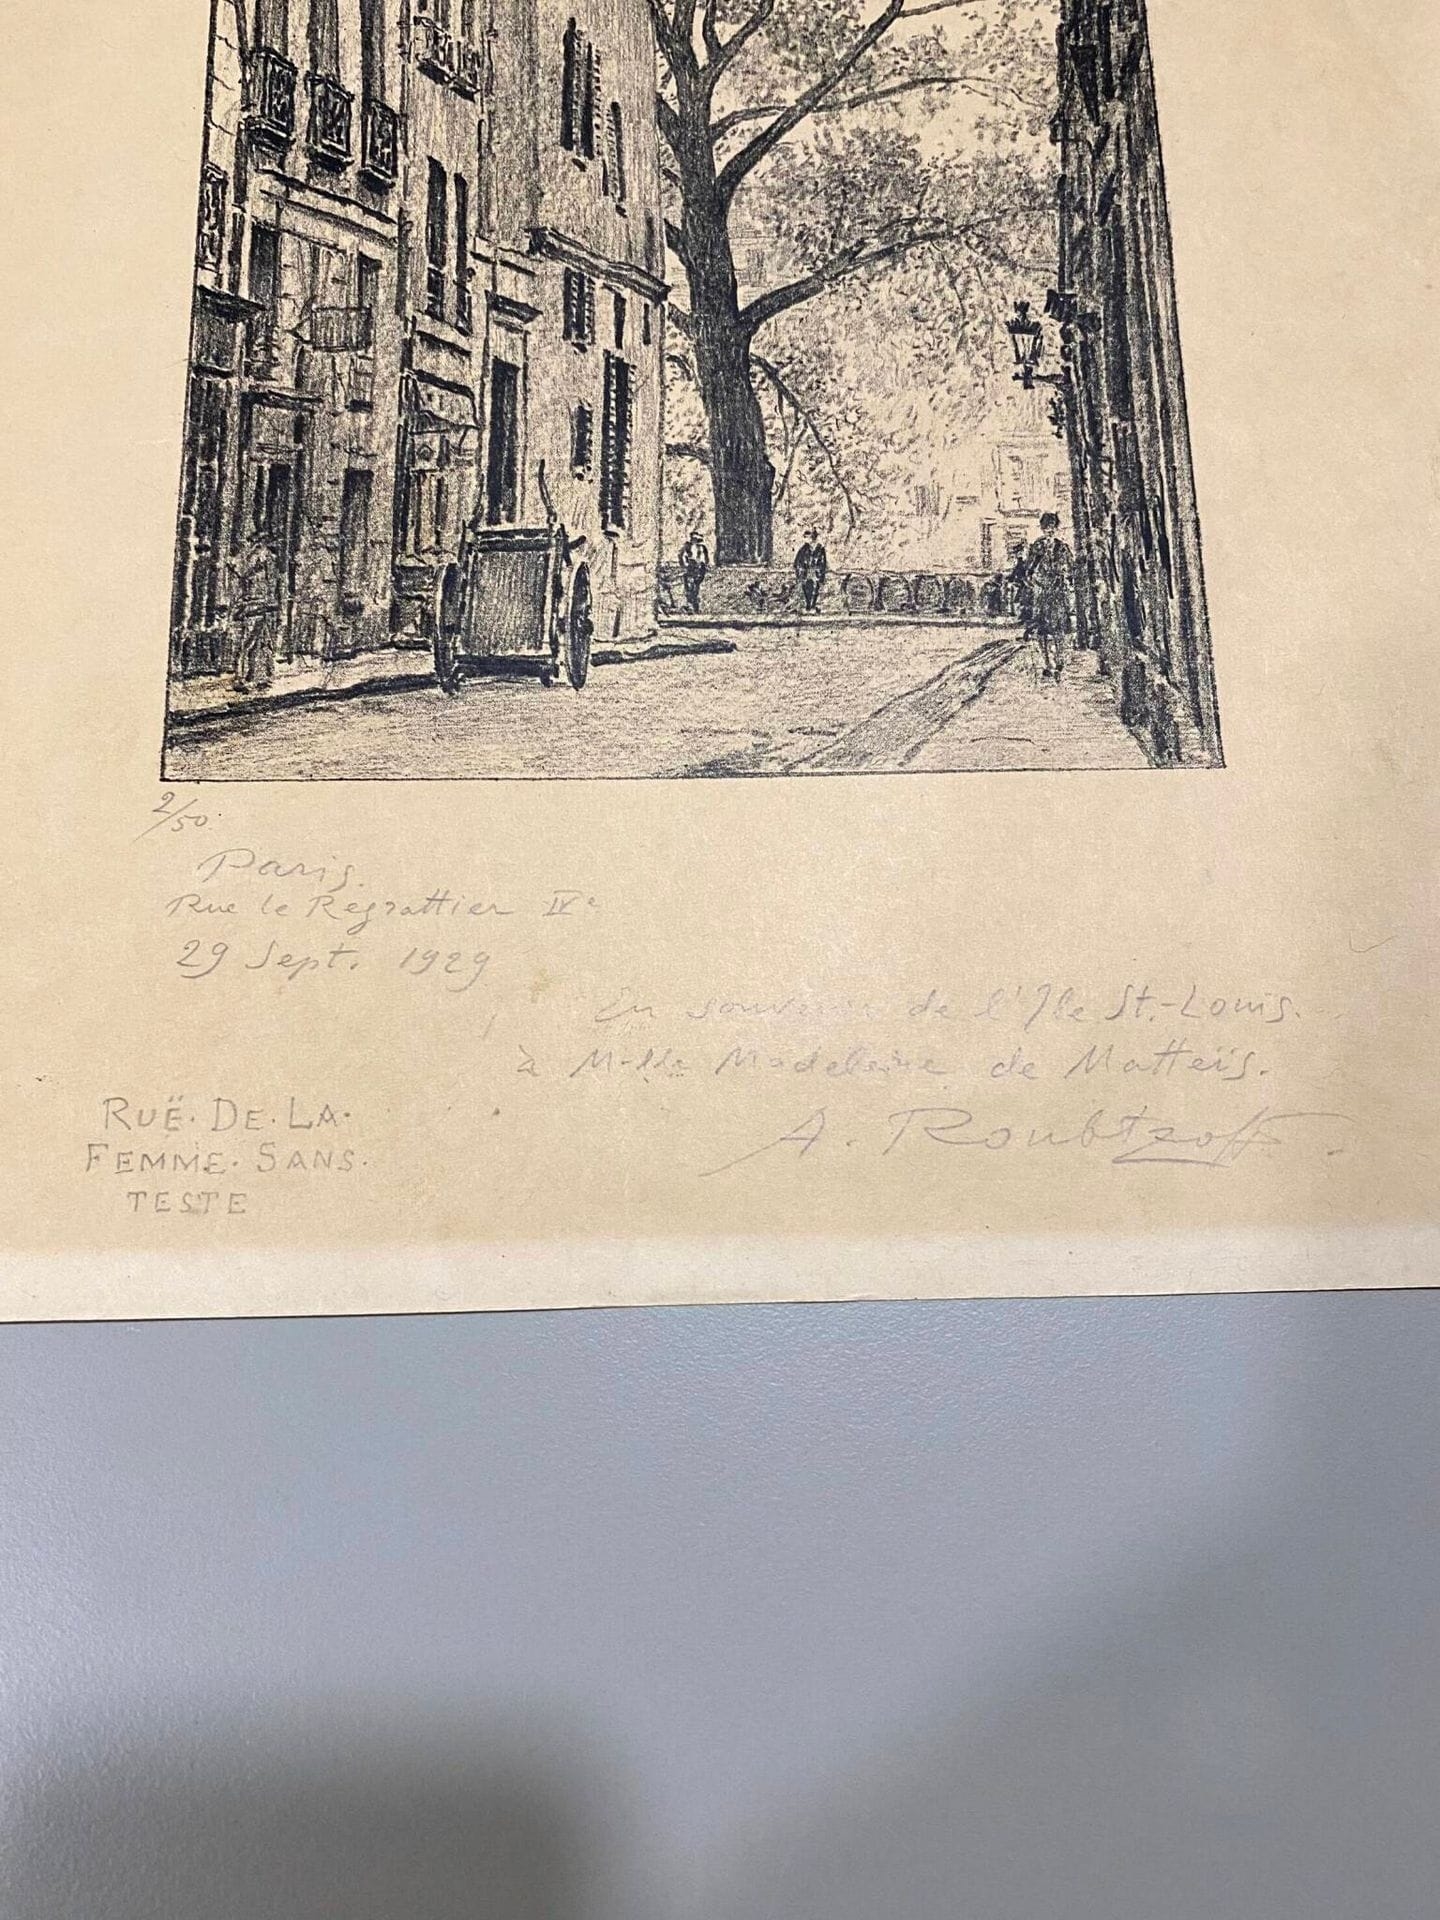 2/50.
Paris.
Rue le Regrattier IVe
29 Sept. 1929
En souvenir de l'Ile St.-Louis.
à M-lle Madeleine de Matteïs.
A. Roubtzoff.
RUË. DE. LA.
FEMME. SANS.
TESTE